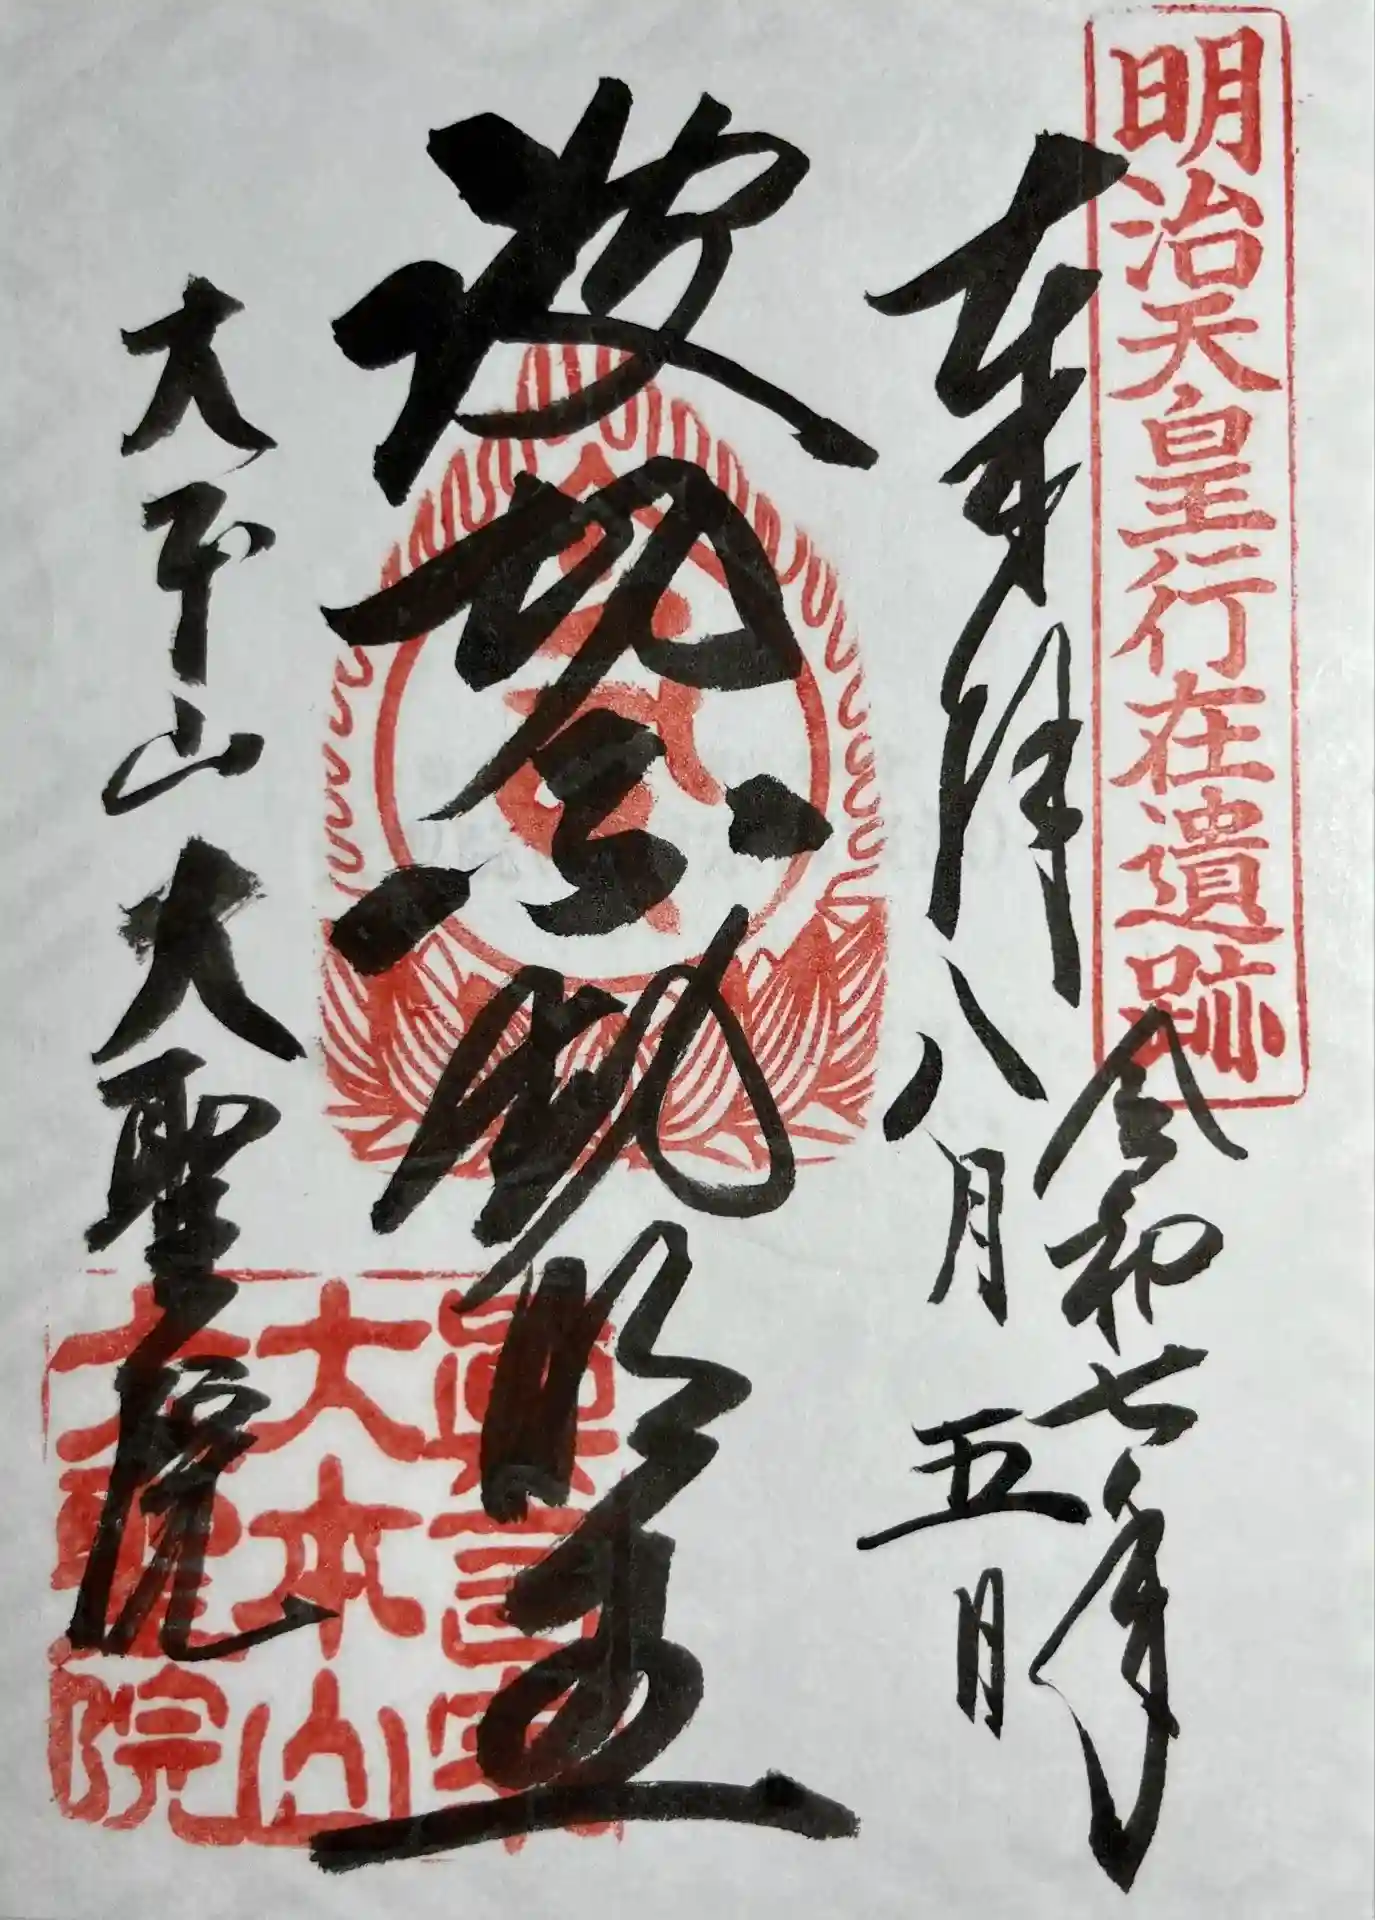 明治天皇行在遺跡
奉拝
令和七年
八月五日
波切不動明王
大本山大聖院
眞言宗
大本山
大聖院